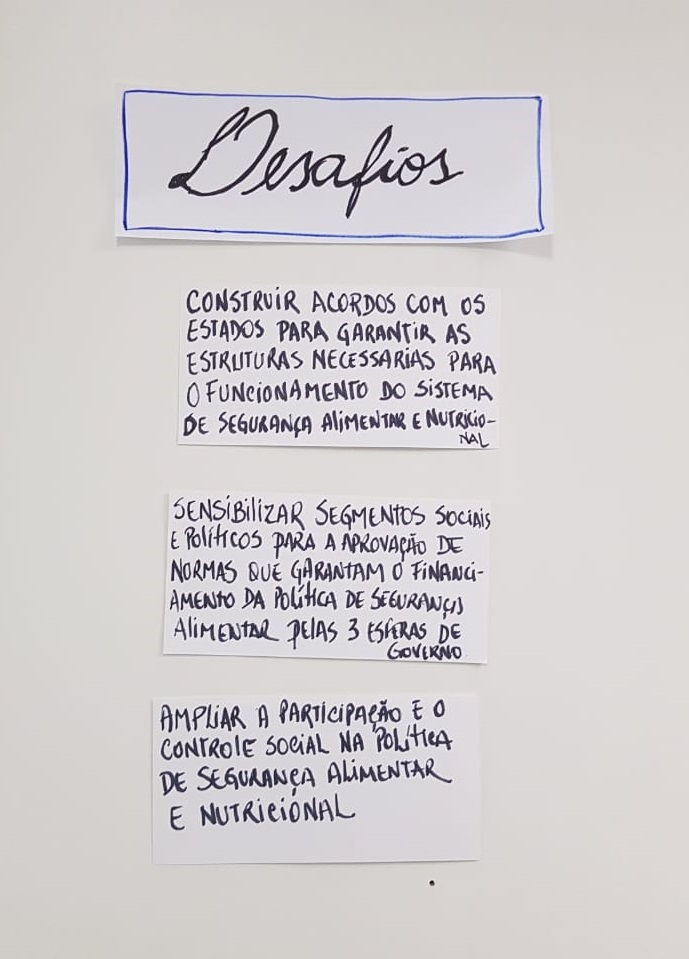 Desafios
CONSTRUIR ACORDOS COM OS
ESTADOS PARA GARANTIR AS
ESTRUTURAS NECESSARIAS PARA
O FUNCIONAMENTO DO SISTEMA
DE SEGURANÇA ALIMENTAR E NUTRICIO-
NAL
SENSIBILIZAR SEGMENTOS SOCIAIS
E POLÍTICOS PARA A APROVAÇÃO DE
NORMAS QUE GARANTAM O FINANCI-
AMENTO DA POLÍTICA DE SEGURANÇA
ALIMENTAR PELAS 3 ESFERAS DE
GOVERNO
AMPLIAR A PARTICIPAÇÃO E O
CONTROLE SOCIAL NA POLÍTICA
DE SEGURANÇA ALIMENTAR
E NUTRICIONAL